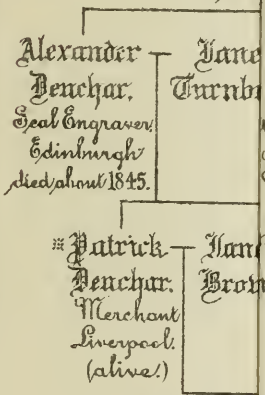 Alexander
Denchar.
Seal Engraver,
Edinburgh
died about 1845.
Jane
※Patrick
Denchar.
Merchant
Liverpool.
(alive.)